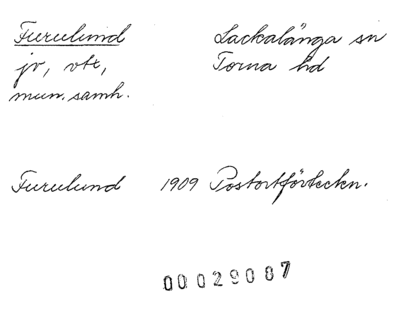 Furulund Lackalänga sn
jv, vbt, Torna hd
mun.samh.
Furulund 1909 Postortförteckn.
00029087